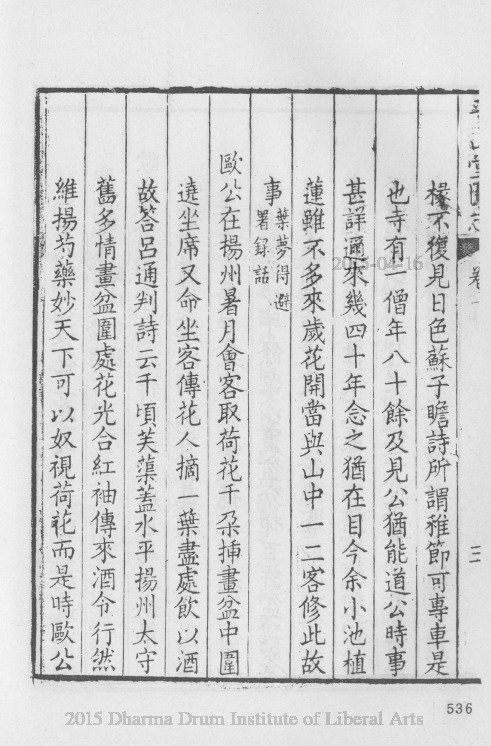 平山堂圖志 卷一 三
椽不復見日色蘇子瞻詩所謂稚節可專車是
也寺有一僧年八十餘及見公猶能道公時事
甚詳邇來幾四十年念之猶在目今余小池植
蓮雖不多來歲花開當與山中一二客修此故
事葉夢得避暑録話
歐公在揚州暑月會客取荷花千朶插畫盆中圍
遶坐席又命坐客傳花人摘一葉盡處飲以酒
故答呂通判詩云千頃芙蕖蓋水平揚州太守
舊多情畫盆圍處花光合紅袖傳來酒令行然
維揚芍藥妙天下可以奴視荷花而是時歐公
536
2015 Dharma Drum Institute of Liberal Arts